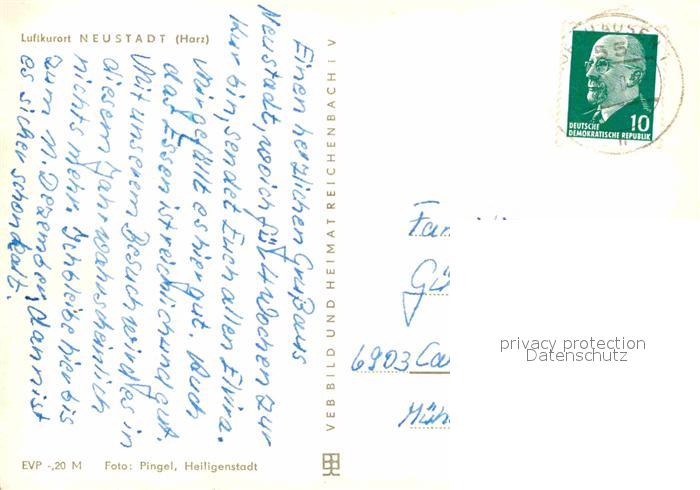 Luftkurort NEUSTADT (Harz)
Einen herzlichen Gruß aus
Neustadt, wo ich für 4 Wochen zur
Kur bin, sendet Euch allen Elvira.
Mir gefällt es hier gut. Auch
das Essen ist reichlich und gut.
Mit unserem Besuch wird es in
diesem Jahr wahrscheinlich
nichts mehr. Ich bleibe hier bis
zum 11. Dezember, dann ist
es sicher schon kalt.
VEB BILD UND HEIMAT REICHENBACH i V
EVP -,20 M Foto: Pingel, Heiligenstadt
10
DEUTSCHE
DEMOKRATISCHE REPUBLIK
Fam
Gü
6903 Ca
Müh
privacy protection
Datenschutz